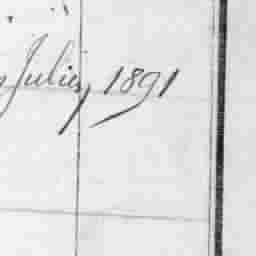 Juliy 1891